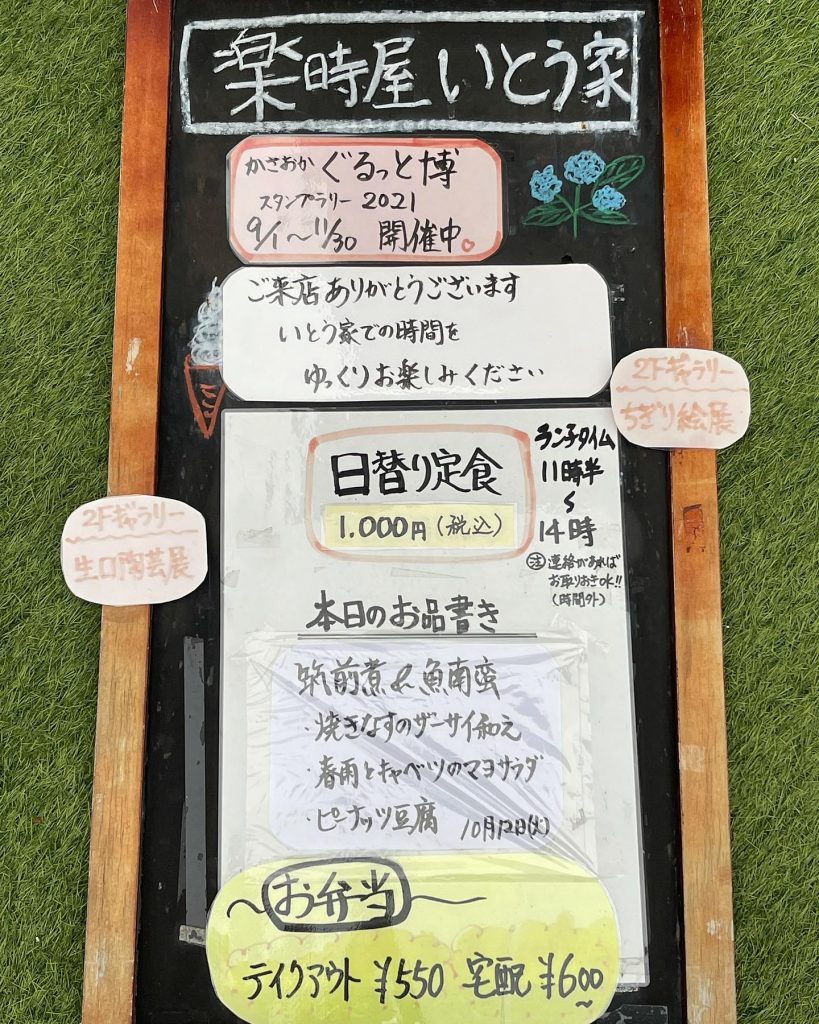 楽時屋いとう家
かさおか ぐるっと博
スタンプラリー 2021
9/1〜11/30 開催中。
ご来店ありがとうございます
いとう家での時間を
ゆっくりお楽しみください
2Fギャラリー
ちぎり絵展
日替り定食
1.000円(税込)
ランチタイム
11時半
〜
14時
注 連絡があれば
お取りおきOK!!
(時間外)
2Fギャラリー
生口陶芸展
本日のお品書き
筑前煮&魚南蛮
・焼きなすのザーサイ和え
・春雨とキャベツのマヨサラダ
・ピーナッツ豆腐 10月12日(火)
〜お弁当〜
テイクアウト ¥550 宅配 ¥600〜